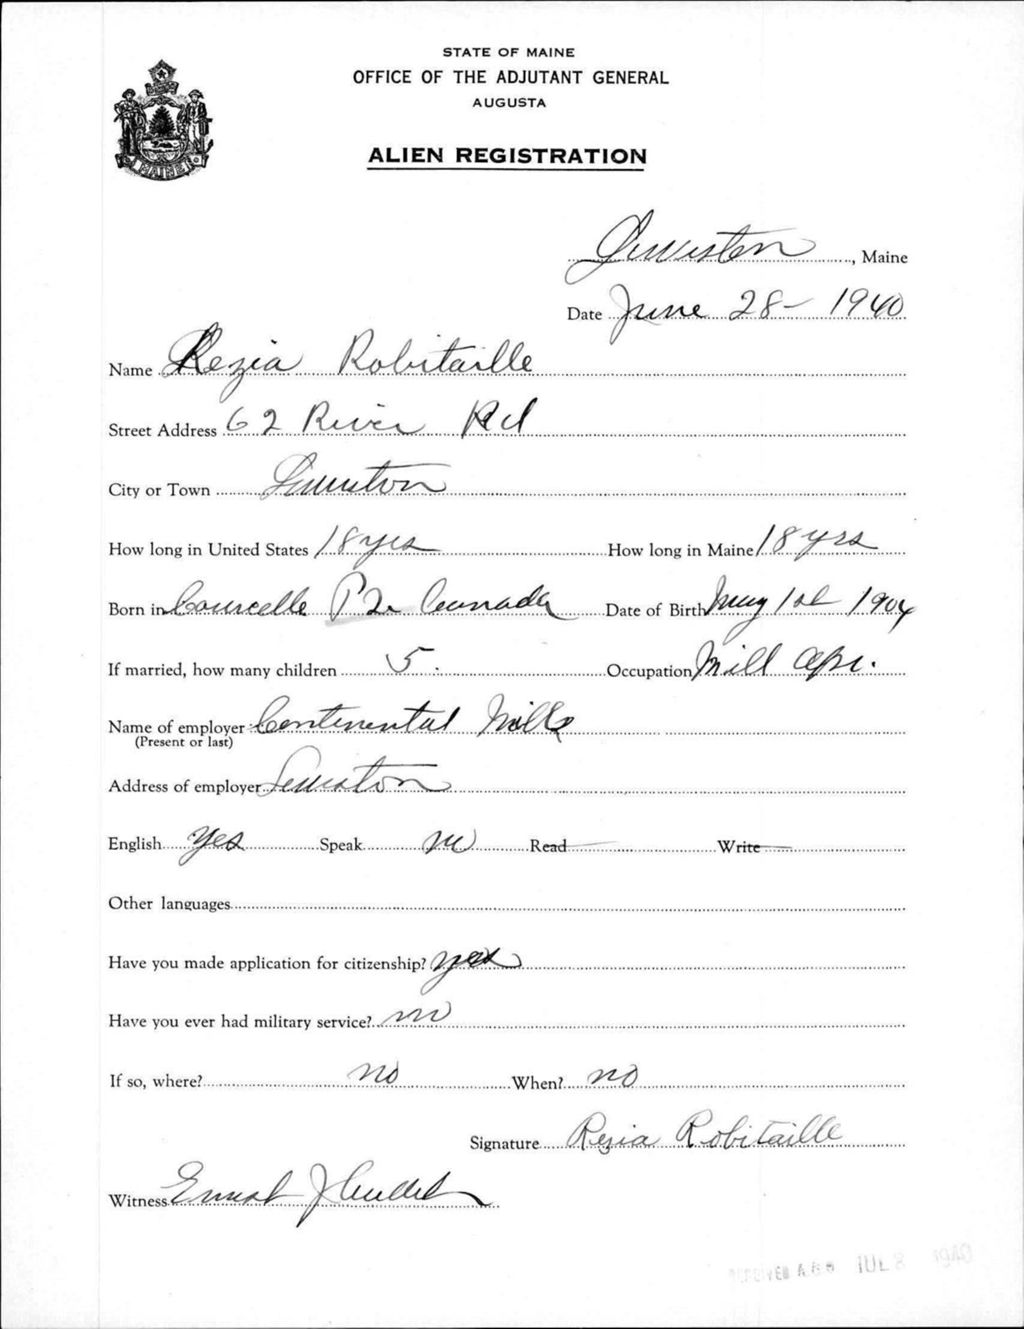 STATE OF MAINE
OFFICE OF THE ADJUTANT GENERAL
AUGUSTA
ALIEN REGISTRATION
MAINE
Lewiston, Maine
Date June 28- 1940
Name Rezia Robitaille
Street Address 62 River Rd
City or Town Lewiston
How long in United States 18 yrs How long in Maine 18 yrs
Born in Courcelle P2 Canada Date of Birth May 1st 1904
If married, how many children 5 Occupation Mill Opr.
Name of employer Continental Mills
(Present or last)
Address of employer Lewiston
English yes Speak no Read Write
Other languages
Have you made application for citizenship? yes
Have you ever had military service? no
If so, where? no When? no
Signature Rezia Robitaille
Witness Ernest J
RECEIVED A.G.O. JUL 8 1940